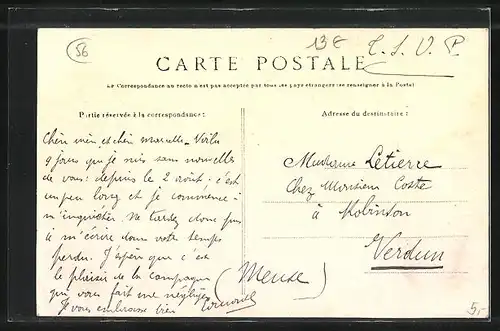 56
13€
T. S. V. P.
CARTE POSTALE
La Correspondance au recto n'est pas acceptée par tous les pays étrangers (se renseigner à la Poste)
Partie réservée à la correspondance :
Adresse du destinataire :
Chère mère et chère Marcelle - Voilà
9 jours que je suis sans nouvelles
de vous : depuis le 2 août : c'est
un peu long et je commence à
m'inquiéter. Ne tardez donc pas
à m'écrire dans votre temps
perdu. J'espère que c'est
le plaisir de la campagne
qui vous fait me négliger
Je vous embrasse bien
Madame Letierce
Chez Monsieur Coste
à
Verdun
(Meuse)
5,-